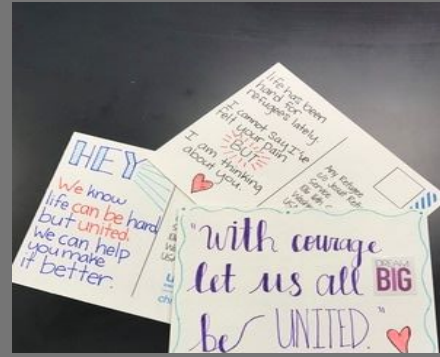 HEY
We know
life can be hard
but united.
We can help
you make
it better.
life has been
hard for
refugees lately.
I cannot say I've
felt your pain
BUT
I am thinking
about you.
Any Refugee
"With courage
let us all
be UNITED."
DREAM
BIG